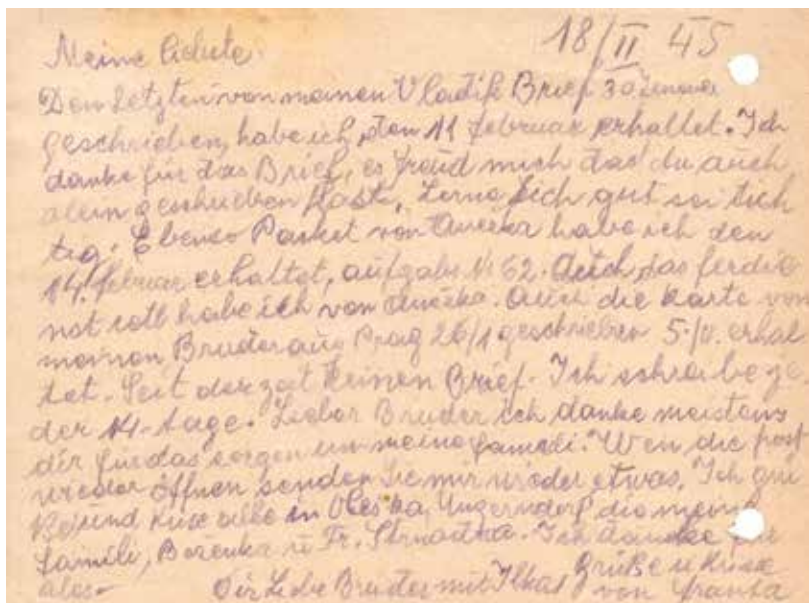 18/II 45
Meine Liebste.
Den Letzten von meinen Vladik Brief 30 Jenner
geschrieben, habe ich, den 11 februar erhaltet. Ich
danke für das Brief, es freud mich das du auch
alein geschrieben hast, Lerne dich gut sei tich
tig. Ebenso Packet von habe ich den
14. februar erhaltet, aufgabe N 62. Auch das ferdie
nst habe ich von. Auch die Karte von
meinen Bruder aus Prag 26/1 geschrieben 5./II. erhal
tet. Seit der zeit keinen Brief. Ich schreibe je
der 14-tage. Lieber Bruder ich danke meistens
dir für das sorgen um meine famili. Wen die post
wieder öffnen senden Sie mir wieder etwas. Ich
und Küse alle in Oleska, Ungerndorf, die meine
famili, Boženka u Fr. Strnadka. Ich danke für
ales- Dir Liebe Bruder mit Grüße u Küse
von Franta